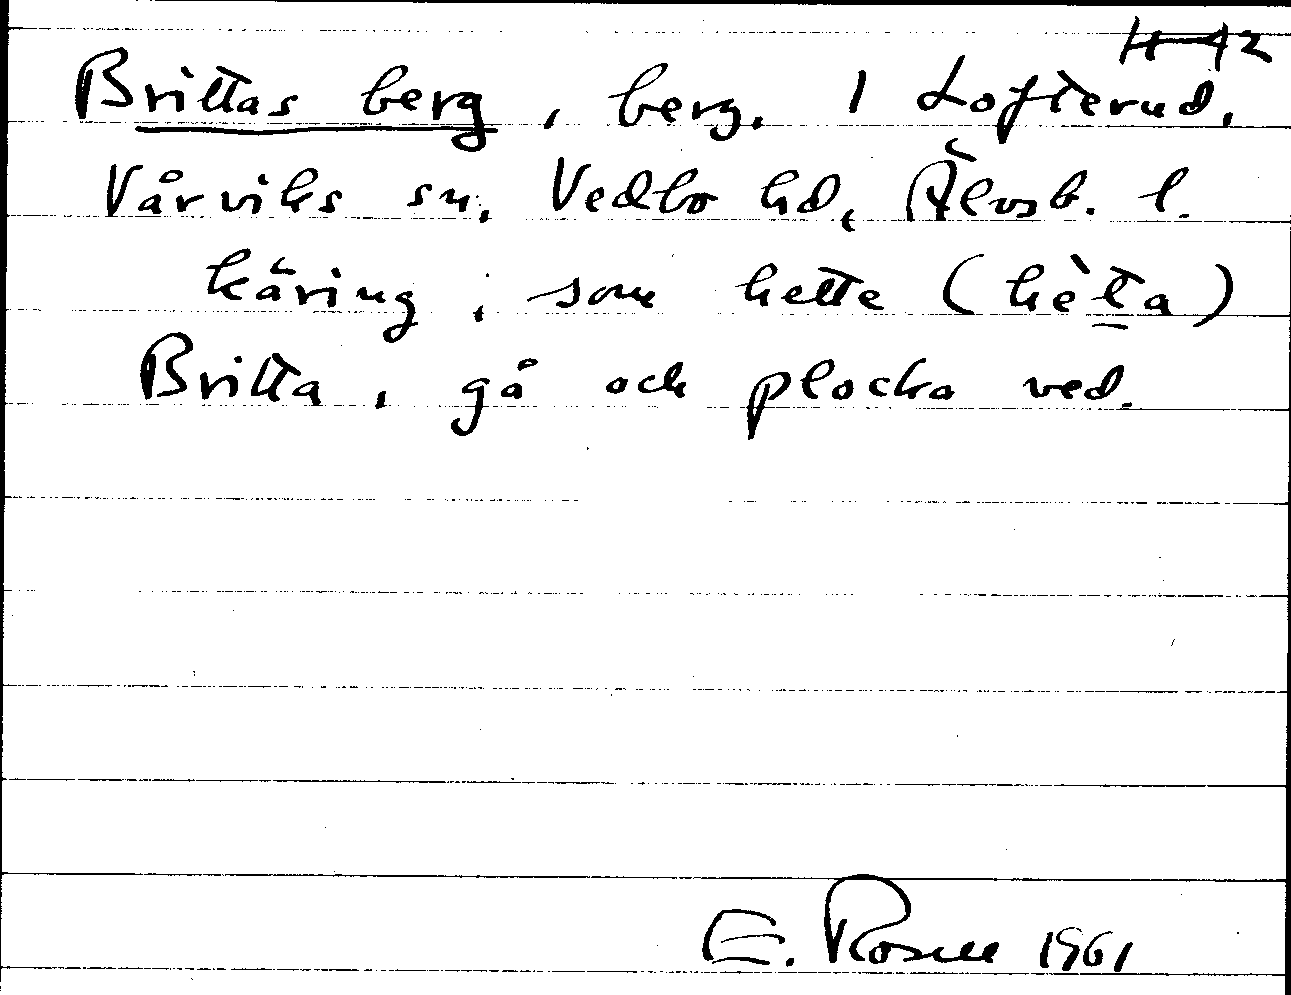 Brittas berg, berg. I Lofterud,
Vårviks sn, Vedbo hd, Älvsb. l.
käring, som hette (hèta)
Britta, gå och plocka ved.
E. Rosell 1961